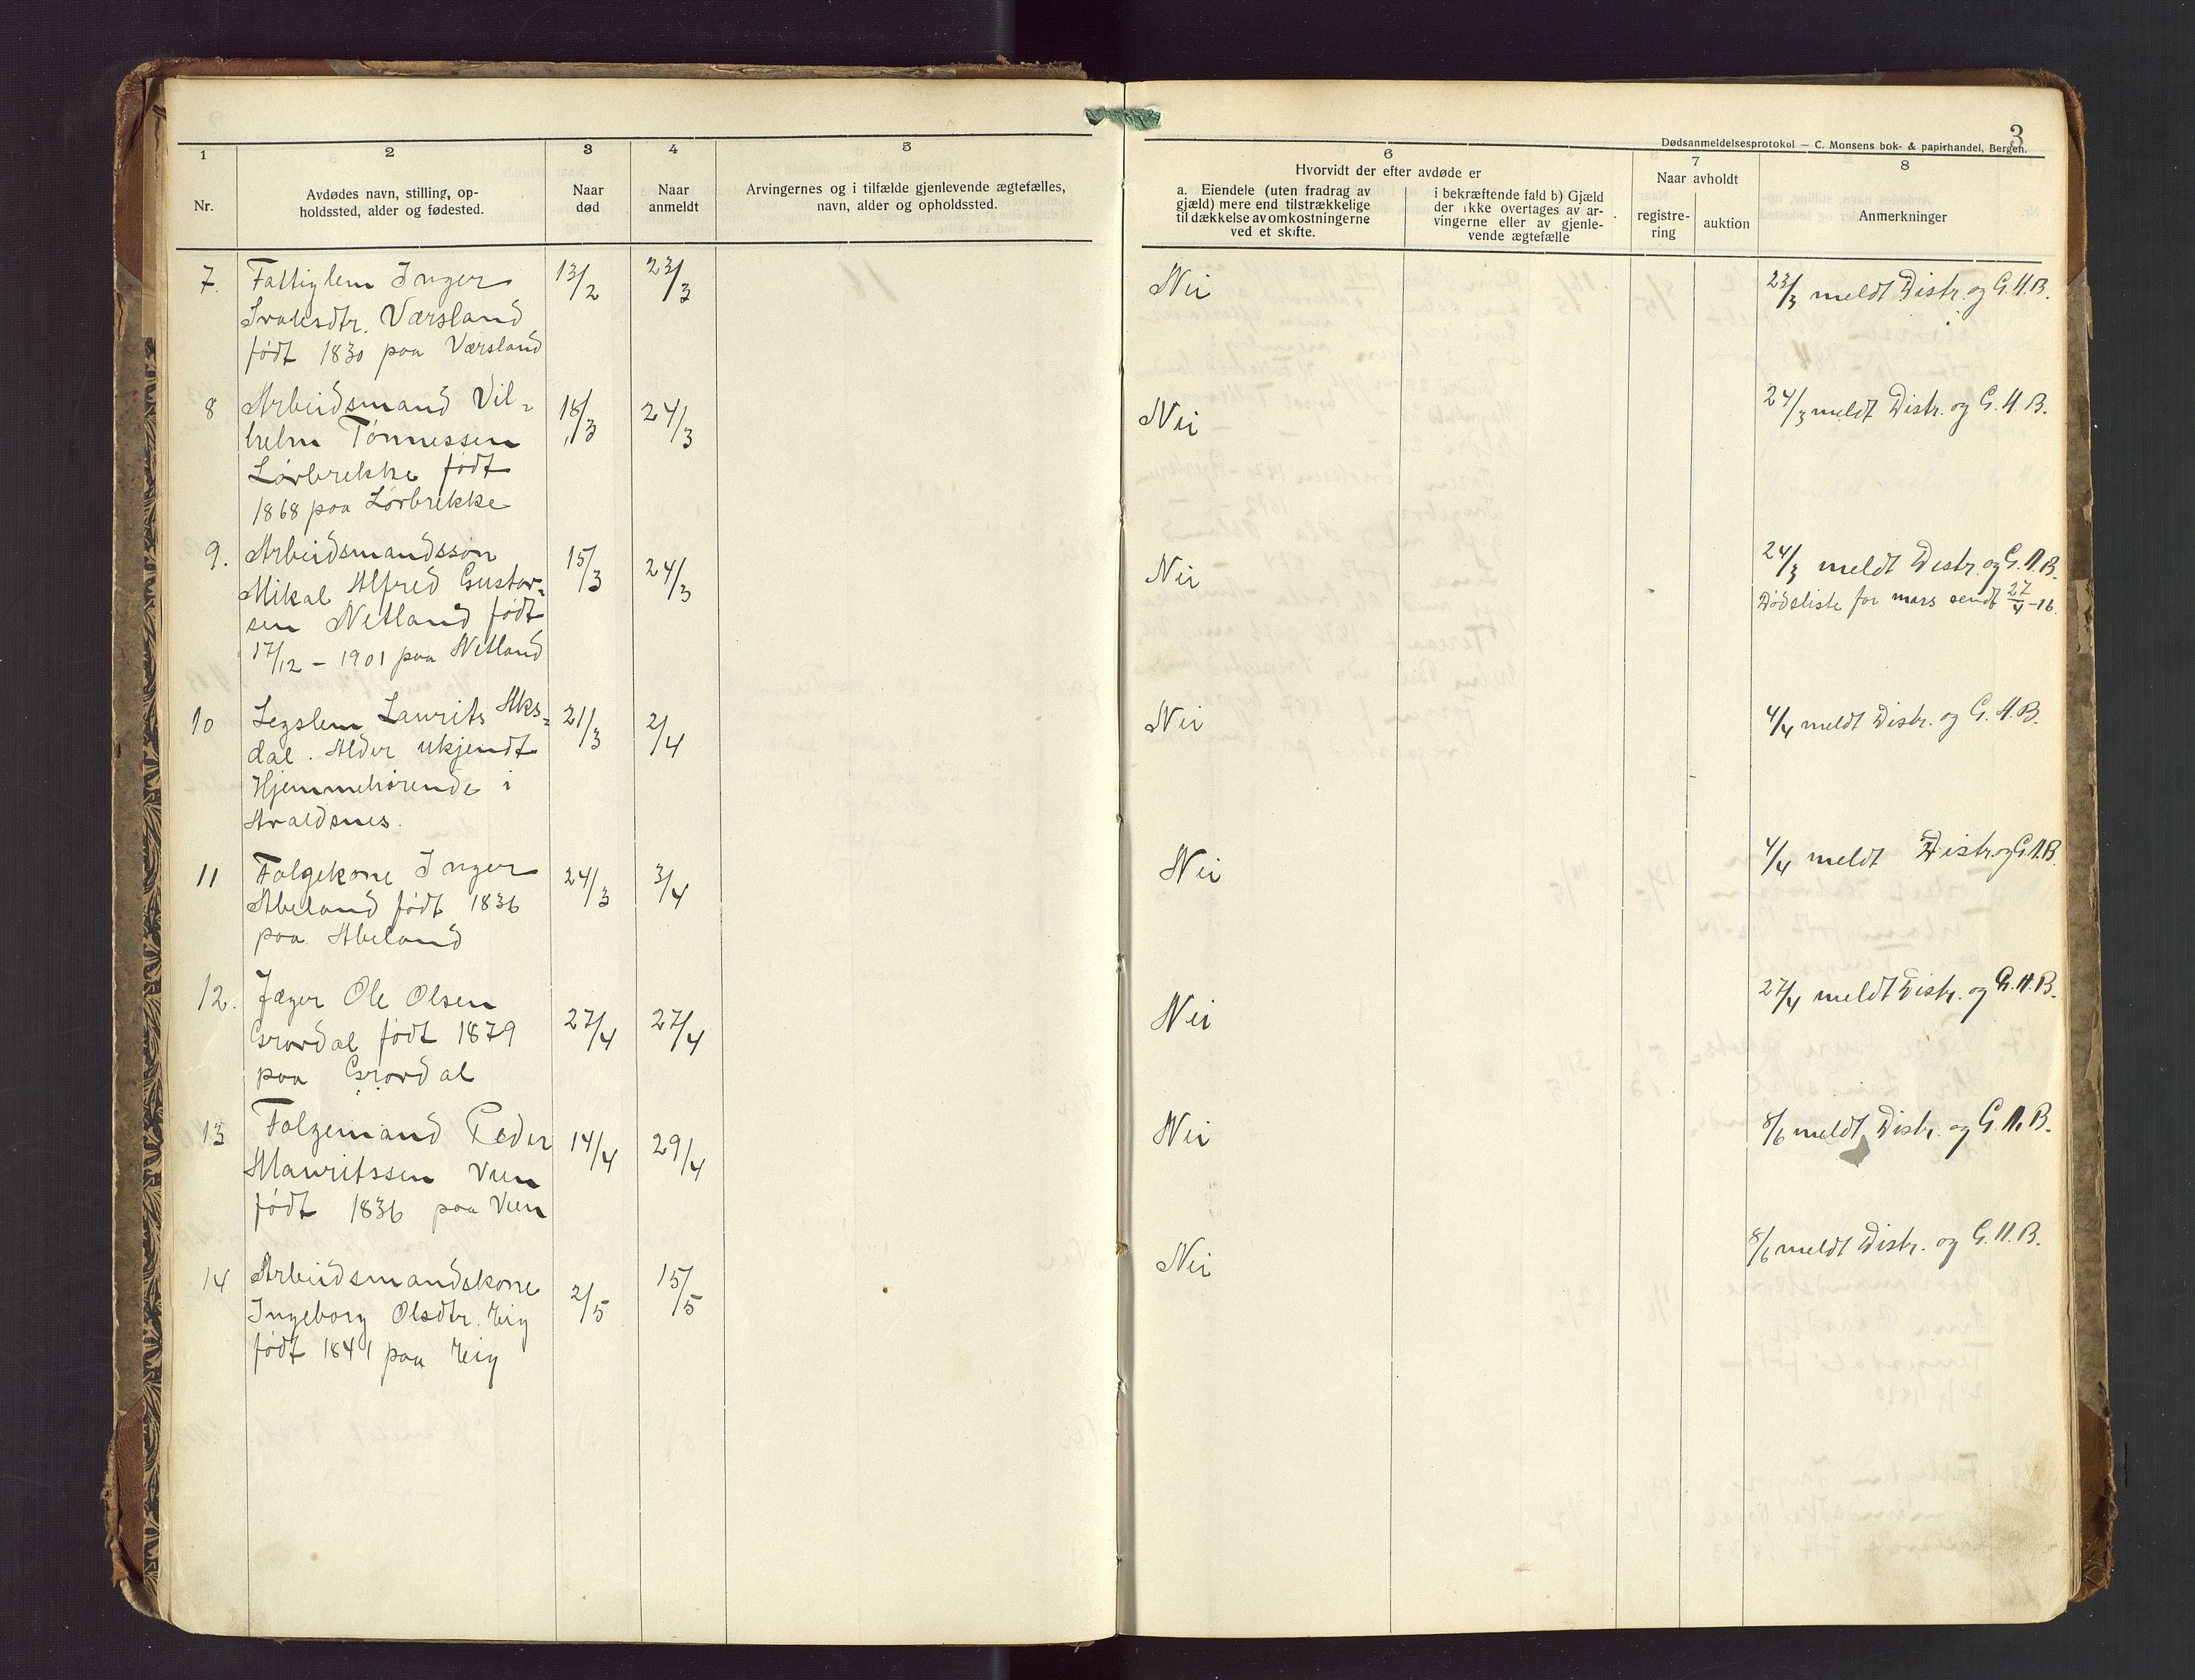 3
Dødsanmeldelsesprotokol — C. Monsens bok- & papirhandel, Bergen.
1
Nr.
2
Avdødes navn, stilling, op-
holdssted, alder og fødested.
3
Naar
død
4
Naar
anmeldt
5
Arvingernes og i tilfælde gjenlevende ægtefælles,
navn, alder og opholdssted.
6
Hvorvidt der efter avdøde er
a. Eiendele (uten fradrag av
gjæld) mere end tilstrækkelige
til dækkelse av omkostningerne
ved et skifte.
i bekræftende fald b) Gjæld
der ikke overtages av ar-
vingerne eller av gjenle-
vende ægtefælle
7
Naar avholdt
registre-
ring
auktion
8
Anmerkninger
7. Fattiglem Inger 13/2 23/3 Nei 23/3 meldt Distr. og G.H.B.
Værsland
født 1830 paa Værsland
8 Arbeidsmand Vil- 18/3 24/3 Nei 24/3 meldt Distr. og G.H.B.
helm Tønnessen
Lørbrekke født
1868 paa Lørbrekke
9. Arbeidsmandssøn 15/3 24/3 Nei 24/3 meldt Distr. og G.H.B.
Mikal Alfred Gustav- Dødsliste for mars sendt 27/4-16.
sen Netland født
17/12 - 1901 paa Netland
10 Legslem Laurits Aks- 21/3 2/4 Nei 4/4 meldt Distr. og G.H.B.
dal. Alder ukjendt
Hjemmehørende i
Avaldsnes.
11 Folgekone Inger 24/3 3/4 Nei 4/4 meldt Distr. og G.H.B.
Abeland født 1836
paa Abeland
12. Jæger Ole Olsen 27/4 27/4 Nei 27/4 meldt Distr. og G.H.B.
født 1879
paa
13 Folgemand Peder 14/4 29/4 Nei 8/6 meldt Distr. og G.H.B.
Mauritssen
født 1836 paa
14 Arbeidsmandskone 2/5 15/5 Nei 8/6 meldt Distr. og G.H.B.
Ingeborg Olsdtr. Eig
født 1841 paa Eig